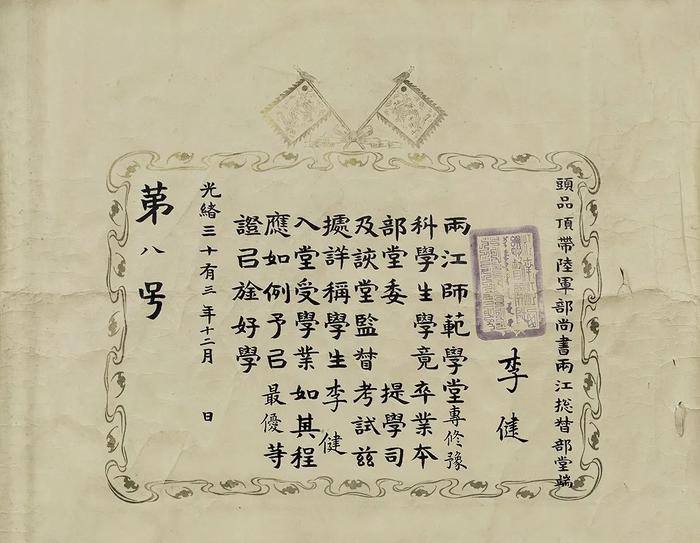 頭品頂帶陸軍部尚書兩江總督部堂端
李健
兩江師範學堂專修豫
科學生學竟卒業本
部堂委提學司
及該堂監督考試茲
據詳稱學生李健
入堂受學業如其程
應如例予㠯最優等
證㠯旌好學
光緒三十有三年十二月 日
第八号